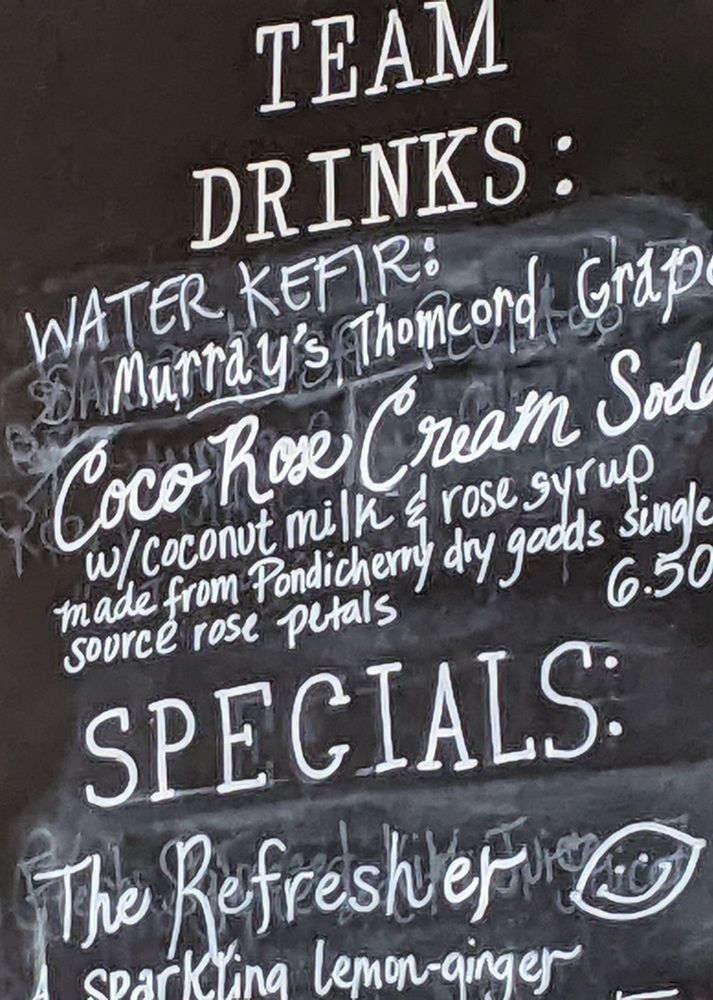 TEAM
DRINKS:
WATER KEFIR:
Murray's Thomcord Grape
Coco Rose Cream Soda
w/coconut milk & rose syrup
made from Pondicherry dry goods single
source rose petals
6.50
SPECIALS:
The Refresher
A sparkling lemon-ginger